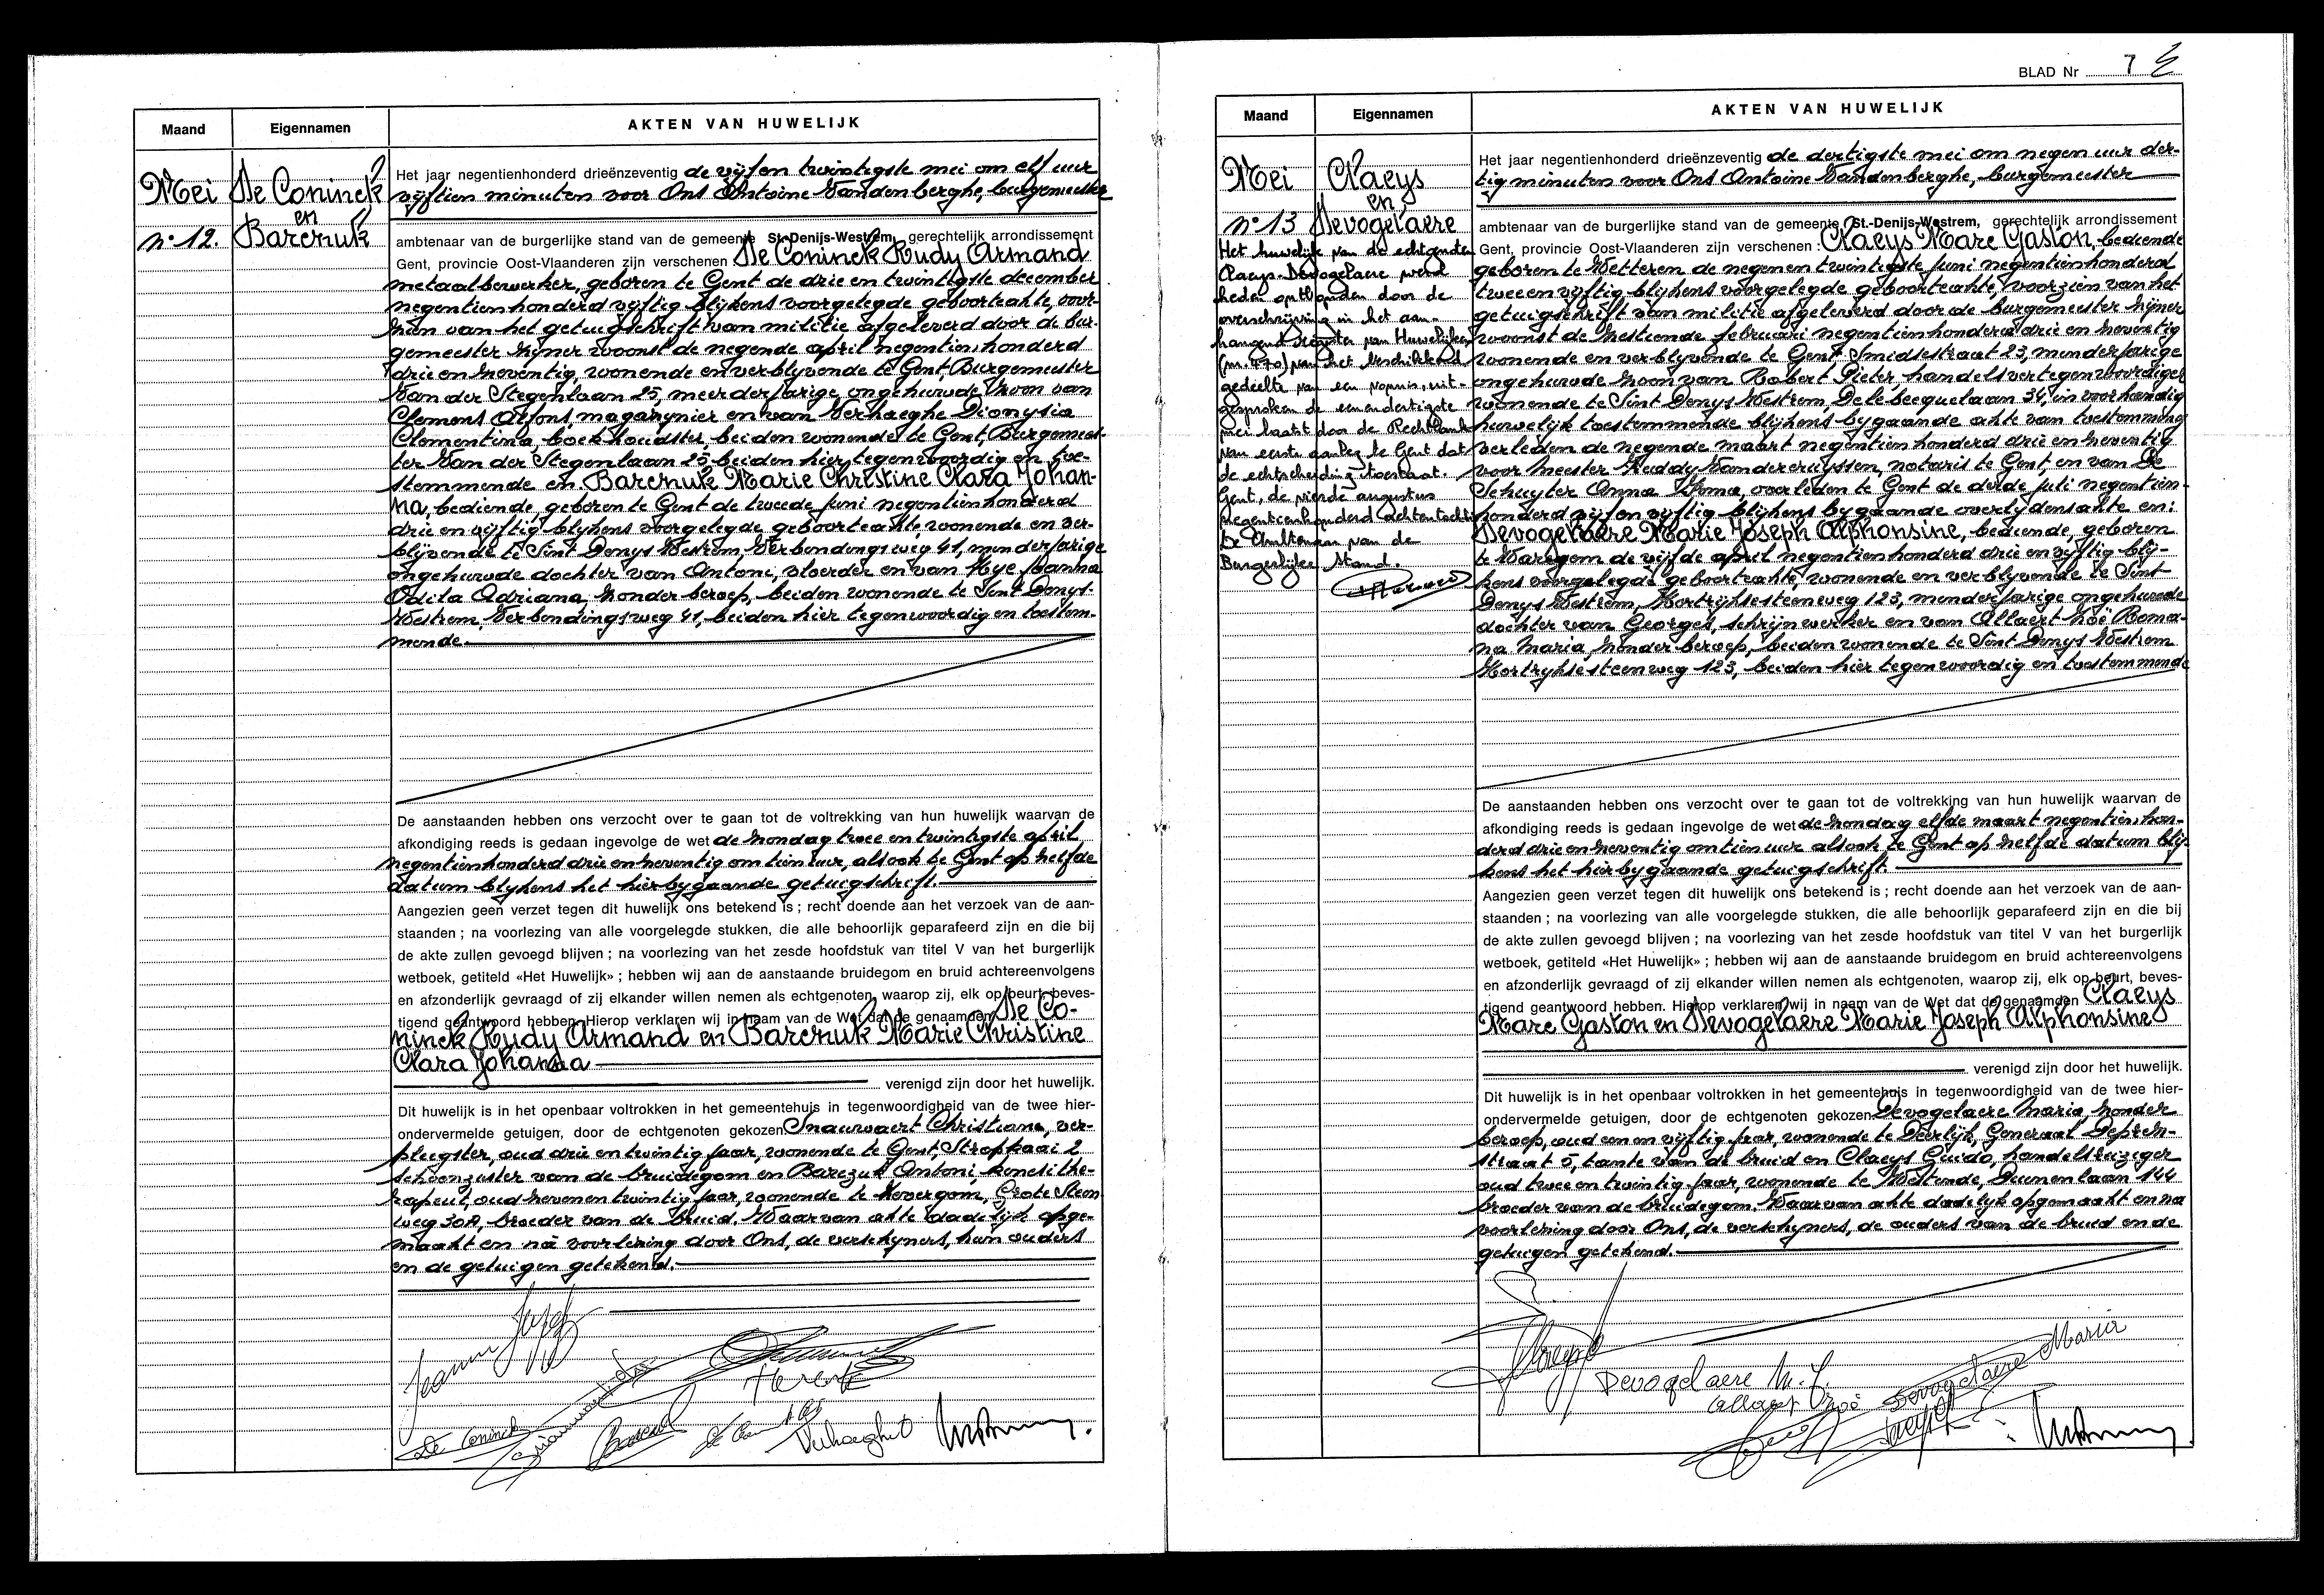 Maand
Eigennamen
AKTEN VAN HUWELIJK
Mei
De Coninck
en
Barcruk
n° 12.
Het jaar negentienhonderd drieënzeventig de vijf en twintigste mei om elf uur
vijftien minuten voor Ons Antoine Vandenberghe, burgemeester
ambtenaar van de burgerlijke stand van de gemeente St-Denijs-Westrem, gerechtelijk arrondissement
Gent, provincie Oost-Vlaanderen zijn verschenen De Coninck Rudy Armand
metaalbewerker, geboren te Gent de drie en twintigste december
negentienhonderd vijftig blijkens voorgelegde geboorteakte, voor-
zien van het getuigschrift van militie afgeleverd door de bur-
gemeester zijner woonst de negende april negentienhonderd
drie en zeventig, wonende en verblijvende te Gent, Burgemeester
Van der Stegenlaan 25, meerderjarige ongehuwde zoon van
Clemens Alfons, magazynier en van Verhaeghe Dionysia
Clementina, boekhoudster, beiden wonende te Gent, Burgemees-
ter Van der Stegenlaan 25, beiden hier tegenwoordig en toe-
stemmende en Barcruk Marie Christine Clara Johan-
na, bediende, geboren te Gent de tweede juni negentienhonderd
drie en vijftig blijkens voorgelegde geboorteakte, wonende en ver-
blijvende te Sint Denys Westrem, Verbondingsweg 41, minderjarige
ongehuwde dochter van Antoni, vloerder en van Heye Joanna
Odila Adriana, zonder beroep, beiden wonende te Sint Denys-
Westrem, Verbondingsweg 41, beiden hier tegenwoordig en toestem-
mende.
De aanstaanden hebben ons verzocht over te gaan tot de voltrekking van hun huwelijk waarvan de
afkondiging reeds is gedaan ingevolge de wet de zondag twee en twintigste april
negentienhonderd drie en zeventig om tien uur, alsook te Gent op zelfde
datum blijkens het hierbygaande getuigschrift.
Aangezien geen verzet tegen dit huwelijk ons betekend is ; recht doende aan het verzoek van de aan-
staanden ; na voorlezing van alle voorgelegde stukken, die alle behoorlijk geparafeerd zijn en die bij
de akte zullen gevoegd blijven ; na voorlezing van het zesde hoofdstuk van titel V van het burgerlijk
wetboek, getiteld «Het Huwelijk» ; hebben wij aan de aanstaande bruidegom en bruid achtereenvolgens
en afzonderlijk gevraagd of zij elkander willen nemen als echtgenoten, waarop zij, elk op beurt, beves-
tigend geantwoord hebben. Hierop verklaren wij in naam van de Wet dat de genaamden De Co-
ninck Rudy Armand en Barcruk Marie Christine
Clara Johanna
verenigd zijn door het huwelijk.
Dit huwelijk is in het openbaar voltrokken in het gemeentehuis in tegenwoordigheid van de twee hier-
ondervermelde getuigen, door de echtgenoten gekozen Snauwaert Christiane, ver-
pleegster, oud drie en twintig jaar, wonende te Gent, Stropkaai 2,
schoonzuster van de bruidegom en Barczuk Antoni, kinesithe-
rapeut, oud zeven en twintig jaar, wonende te Zevergem, Grote Steen
weg 30A, broeder van de bruid. Waarvan akte dadelijk opge-
maakt en na voorlezing door Ons, de verschijners, hun ouders
en de getuigen getekend.
De Coninck
Verhaeghe
BLAD Nr 7
Maand
Eigennamen
AKTEN VAN HUWELIJK
Mei
Claeys
en
Devogelaere
n° 13
Het huwelijk van de echtgenoten
Claeys-Devogelaere werd
heden ontbonden door de
overschrijving in het aan-
hangend Register van Huwelijken
(nr. 470) van het beschikkend
gedeelte van een vonnis, uit-
gesproken de eenendertigste
mei laatst door de Rechtbank
van eerste aanleg te Gent dat
de echtscheiding toestaat.
Gent, de vierde augustus
negentienhonderd achtentachtig
De Ambtenaar van de
Burgerlijke Stand.
Het jaar negentienhonderd drieënzeventig de dertigste mei om negen uur der-
tig minuten voor Ons Antoine Vandenberghe, burgemeester
ambtenaar van de burgerlijke stand van de gemeente St.-Denijs-Westrem, gerechtelijk arrondissement
Gent, provincie Oost-Vlaanderen zijn verschenen : Claeys Marc Gaston, bediende
geboren te Wetteren de negen en twintigste juni negentienhonderd
twee en vijftig blijkens voorgelegde geboorteakte, voorzien van het
getuigschrift van militie afgeleverd door de burgemeester zijner
woonst de zestiende februari negentienhonderd drie en zeventig
wonende en verblijvende te Gent, Smidsestraat 23, minderjarige
ongehuwde zoon van Robert Pieter handelsvertegenwoordiger
wonende te Sint Denys Westrem, Delebecquelaan 34, in voorhandig
huwelijk toestemmende blijkens bygaande akte van toestemming
verleden de negende maart negentienhonderd drie en zeventig
voor Meester Ruddy Vandercruyssen, notaris te Gent, en van De
Schuyter Anna Irma, overleden te Gent de derde juli negentien-
honderd vijf en vijftig blijkens bygaande overlijdensakte en:
Devogelaere Marie Joseph Alphonsine, bediende, geboren
te Waregem de vijfde april negentienhonderd drie en vijftig blij-
kens voorgelegde geboorteakte, wonende en verblijvende te Sint
Denys Westrem, Kortrijksesteenweg 123, minderjarige ongehuwde
dochter van Georges, schrijnwerker en van Allaert Noë Roma-
na Maria, zonder beroep, beiden wonende te Sint Denys Westrem
Kortrijksesteenweg 123, beiden hier tegenwoordig en toestemmende
De aanstaanden hebben ons verzocht over te gaan tot de voltrekking van hun huwelijk waarvan de
afkondiging reeds is gedaan ingevolge de wet de zondag elfde maart negentienhon-
derd drie en zeventig om tien uur alsook te Gent op zelfde datum blij-
kens het hierbygaande getuigschrift.
Aangezien geen verzet tegen dit huwelijk ons betekend is ; recht doende aan het verzoek van de aan-
staanden ; na voorlezing van alle voorgelegde stukken, die alle behoorlijk geparafeerd zijn en die bij
de akte zullen gevoegd blijven ; na voorlezing van het zesde hoofdstuk van titel V van het burgerlijk
wetboek, getiteld «Het Huwelijk» ; hebben wij aan de aanstaande bruidegom en bruid achtereenvolgens
en afzonderlijk gevraagd of zij elkander willen nemen als echtgenoten, waarop zij, elk op beurt, beves-
tigend geantwoord hebben. Hierop verklaren wij in naam van de Wet dat de genaamden Claeys
Marc Gaston en Devogelaere Marie Joseph Alphonsine
verenigd zijn door het huwelijk.
Dit huwelijk is in het openbaar voltrokken in het gemeentehuis in tegenwoordigheid van de twee hier-
ondervermelde getuigen, door de echtgenoten gekozen Devogelaere Maria, zonder
beroep, oud een en vijftig jaar, wonende te Deerlijk, Generaal Deprez-
straat 5, tante van de bruid en Claeys Guido, handelsreiziger
oud twee en twintig jaar, wonende te Oostende, Duinenlaan 144
broeder van de bruidegom. Waarvan akte dadelijk opgemaakt en na
voorlezing door Ons, de verschijners, de ouders van de bruid en de
getuigen getekend.
Devogelaere M. J.
Devogelaere Maria